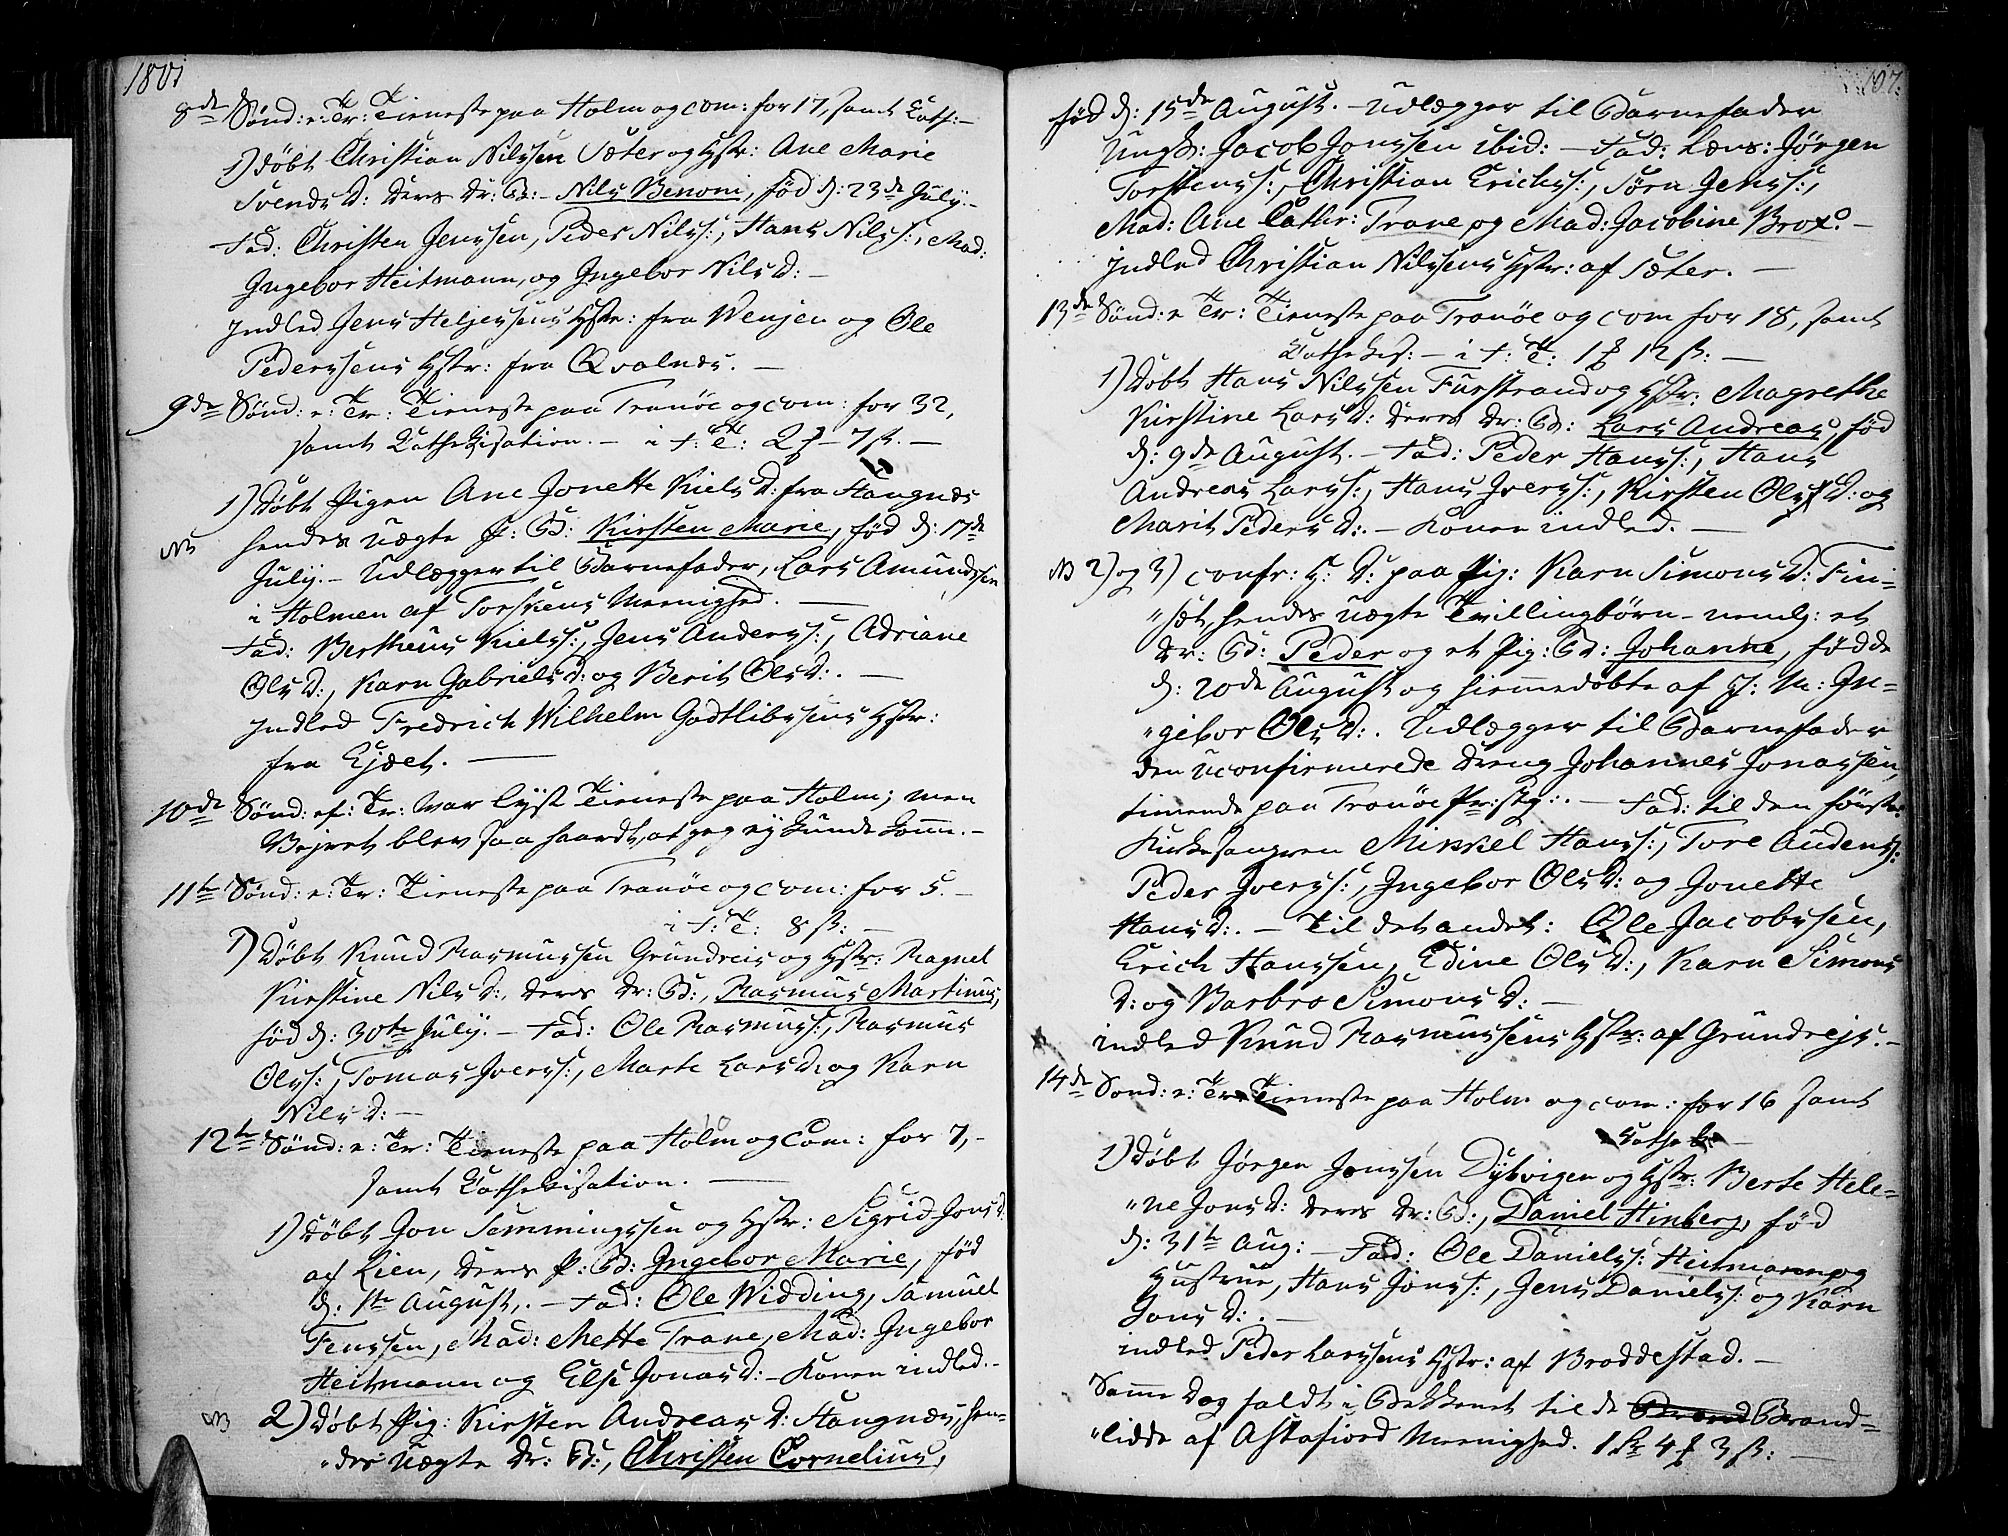 1801
8de Sønd: e: Tr: Tieneste paa Holm og com: for 17, samt Cath: –
1) Døbt Christian Nilssen Sæter og Hstr: Ane Marie
Svends D: deres Dr: B: – Nils Benoni, fød d: 23de July. –
Fad: Christen Jenssen, Peder Nils:, Hans Nils:, Mad:
Ingebor Heitmann, og Ingebor Nils D: –
Indled Jens Heljesens Hstr: fra Wenjen og Ole
Pedersens Hstr: fra Qvalnes. –
9de Sønd: e: Tr: Tieneste paa Tranöe og com: for 32,
samt Cathekisation. – i T: T: 2 – 7 ß. –
1) Døbt Pigen Ane Jonette Niels D: fra Stangnes
NB hendes uægte P: B: Kirsten Marie, fød d: 17de
July. – Udlægger til Barnefader, Lars Amundssen
i Holmen af Torskens Meenighed. –
Fad: Bertheus Niels:, Jens Anders:, Adriane
Ols D:, Karn Gabriels D: og Berit Ols D: –
Indled Fredrich Wilhelm Godtlibsens Hstr:
fra Gjæet. –
10de Sønd: ef: Tr: War lyst Tieneste paa Holm; men
Vejret blev saa haardt, at jeg ej kunde komme. –
11te Sønd: e: Tr: Tieneste paa Tranöe og com: for 5. –
i T: T: 8 ß: –
1) Døbt Knud Rasmussen Grundreis og Hstr: Ragnel
Kirstine Nils D:, deres Dr: B:, Rasmus Martinus,
fød d: 30te July. – Fad: Ole Rasmus:, Rasmus
Ols:, Tomas Ivers:, Marte Lars D: og Karn
Nils D: –
12te Sønd: e: Tr: Tieneste paa Holm og Com: for 7, –
samt Cathekisation. –
1) Døbt Jon Semmingssen og Hstr: Sigrid Jons D:
af Lien, deres P: B: Ingebor Marie, fød
d: 1te August. – Fad: Ole Widding, Samuel
Fenssen, Mad: Mette Trane, Mad: Ingebor
Heitmann og Else Jonas D: – Konen indled. –
NB 2) Døbt Pig: Kirsten Andreas D: Stangnes, hen-
„des uægte Dr: B:, Christen Cornelius,
107.
fød d: 15de August. – Udlægger til Barnefader
Ungk: Jacob Jonssen ibid: – Fad: Lens: Jörgen
Torstens:, Christian Erichs:, Sørn Jens:,
Mad: Ane Cathr: Trane og Mad: Jacobine Brox. –
Indled Christian Nilssens Hstr: af Sæter. –
13de Sønd: e Tr: Tieneste paa Tranöe og com for 18, samt
Cathekis: – i T: T: 1 12 ß: –
1) Døbt Hans Nilssen Furstrand og Hstr: Magrethe
Kirstine Lars D: deres Dr: B: Lars Andreas, fød
d: 9de August. – Fad: Peder Hans:, Hans
Andreas Lars:, Hans Ivers:, Kirsten Ols D: og
Marit Peders D: – Konen indled. –
NB 2) og 3) confr: H: D: paa Pig: Karn Simons D: Fin-
„sæt, hendes uægte Tvillingbörn – nemlg: et
Dr: B: Peder og et Pig: B: Johanne, födde
d: 20de August og hiemmedøbte af J: M: In-
„gebor Ols D:. Udlægger til Barnefader
den uconfirmerede Dreng Johannes Jonassen,
tienende paa Tranöe Pr:stg:. – Fad: til den første:
Kirkesangeren Mikkel Hans:, Tore Audens:
Peder Ivers:, Ingebor Ols D: og Jonette
Hans D:. – Til det andet: Ole Jacobssen,
Erich Hanssen, Edine Ols D:, Karn Simons
D: og Barbro Simons D: –
indled Knud Rasmussens Hstr: af Grundrejs. –
14de Sønd: e: Tr: Tieneste paa Holm og com: for 16 samt
Cathek: –
1) Døbt Jørgen Jenssen Dybvigen og Hstr: Berte Hele-
„ne Jons D: deres Dr: B:, Daniel Hinberg, fød
d: 31te Aug: – Fad: Ole Daniels: Heitmann og
Hustrue, Hans Jons:, Jens Daniels: og Karn
Jons D:. –
indled Peder Larssens Hstr: af Broddestad. –
Samme Dag faldt i Bekkenet til de Brand-
„lidte af Astafiord Meenighed. 1 4 3 ß: –